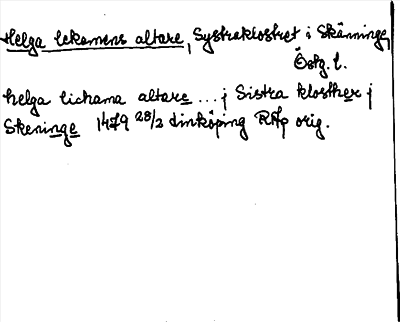 Helga lekamens altare, Systraklostret i Skänninge,
Östg. l.
helga lichama altare ... j Sistra klosther j
Skeninge 1479 28/2 Linköping RAp orig.